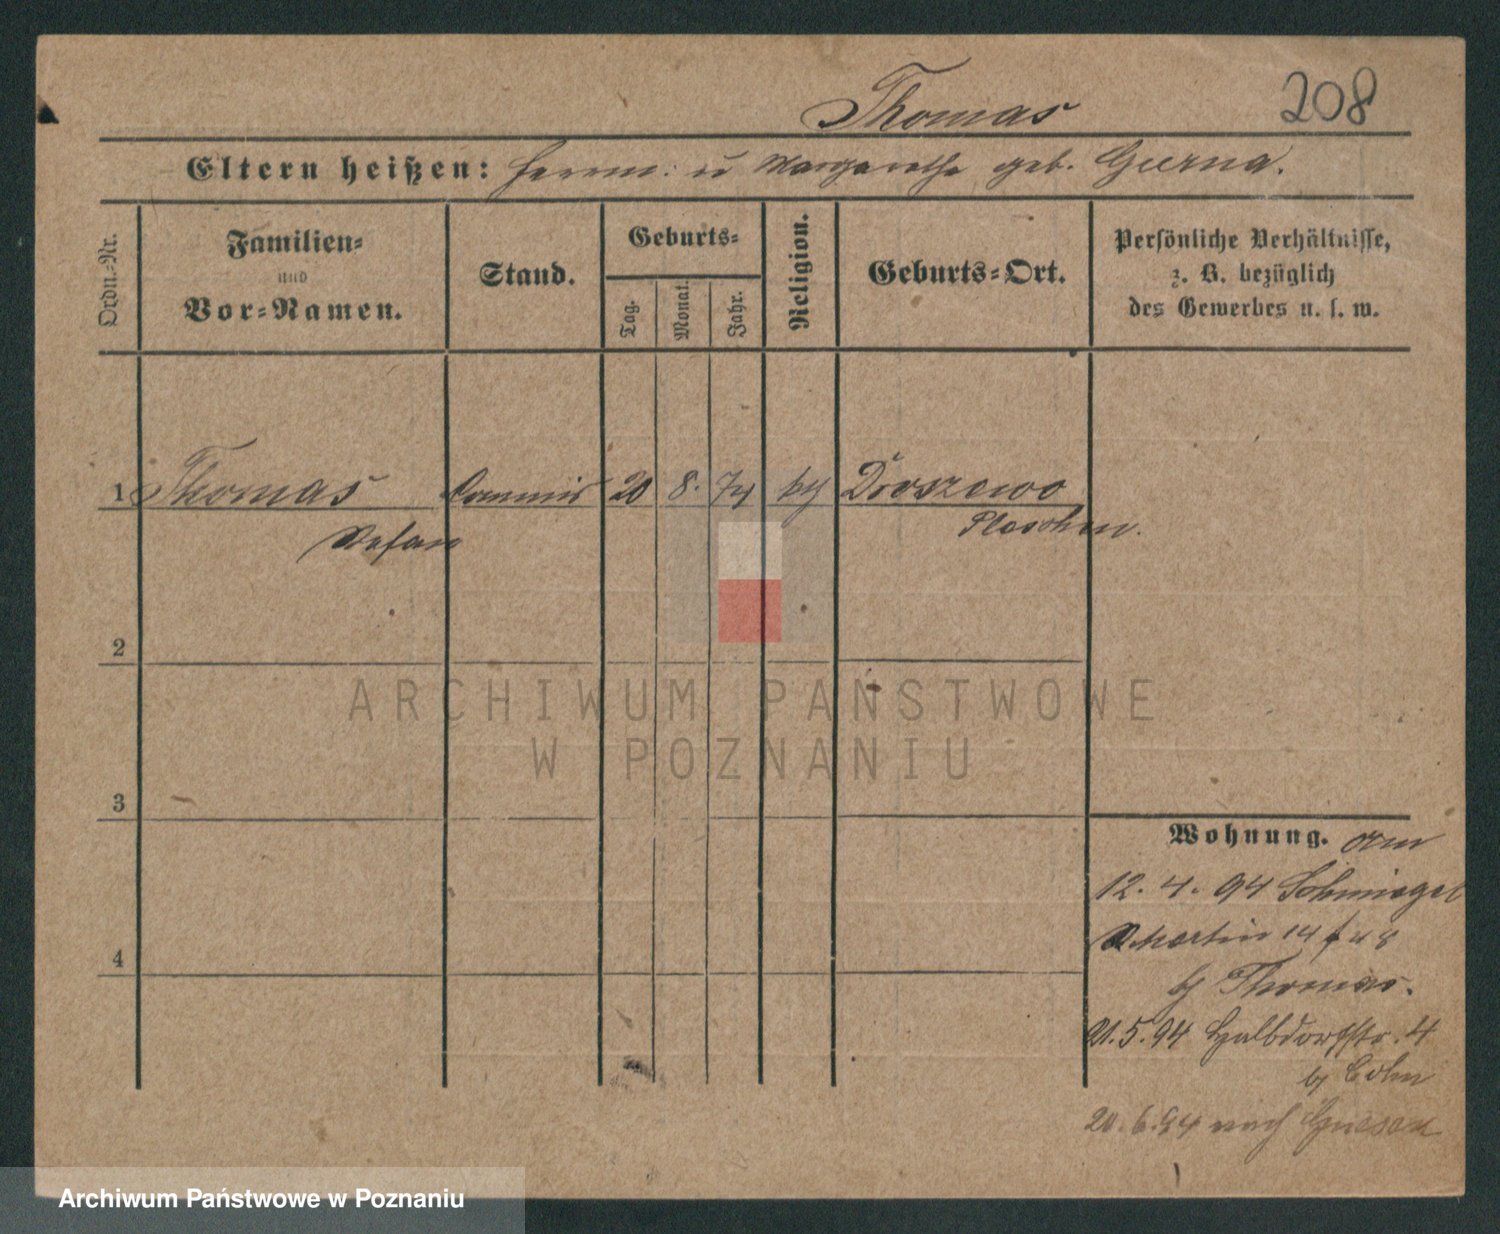 Thomas
208
Eltern heißen: Herrm: u Margarethe geb. Gierna.
Ordn.-Nr.
Familien-
und
Vor-Namen.
Stand.
Geburts-
Tag.
Monat.
Jahr.
Religion.
Geburts-Ort.
Persönliche Verhältnisse,
z. B. bezüglich
des Gewerbes u. s. w.
1 Thomas Commis 20 8. 74 Droszewo
Stefan Pleschen.
2
3
4
Wohnung. am
12. 4. 94 Schmiegel
Martin 14
b/ Thomas.
21.5.94 Halbdorfstr. 4
b/ Cohn
20.6.94 nach Gnesen
ARCHIWUM PAŃSTWOWE
W POZNANIU
Archiwum Państwowe w Poznaniu